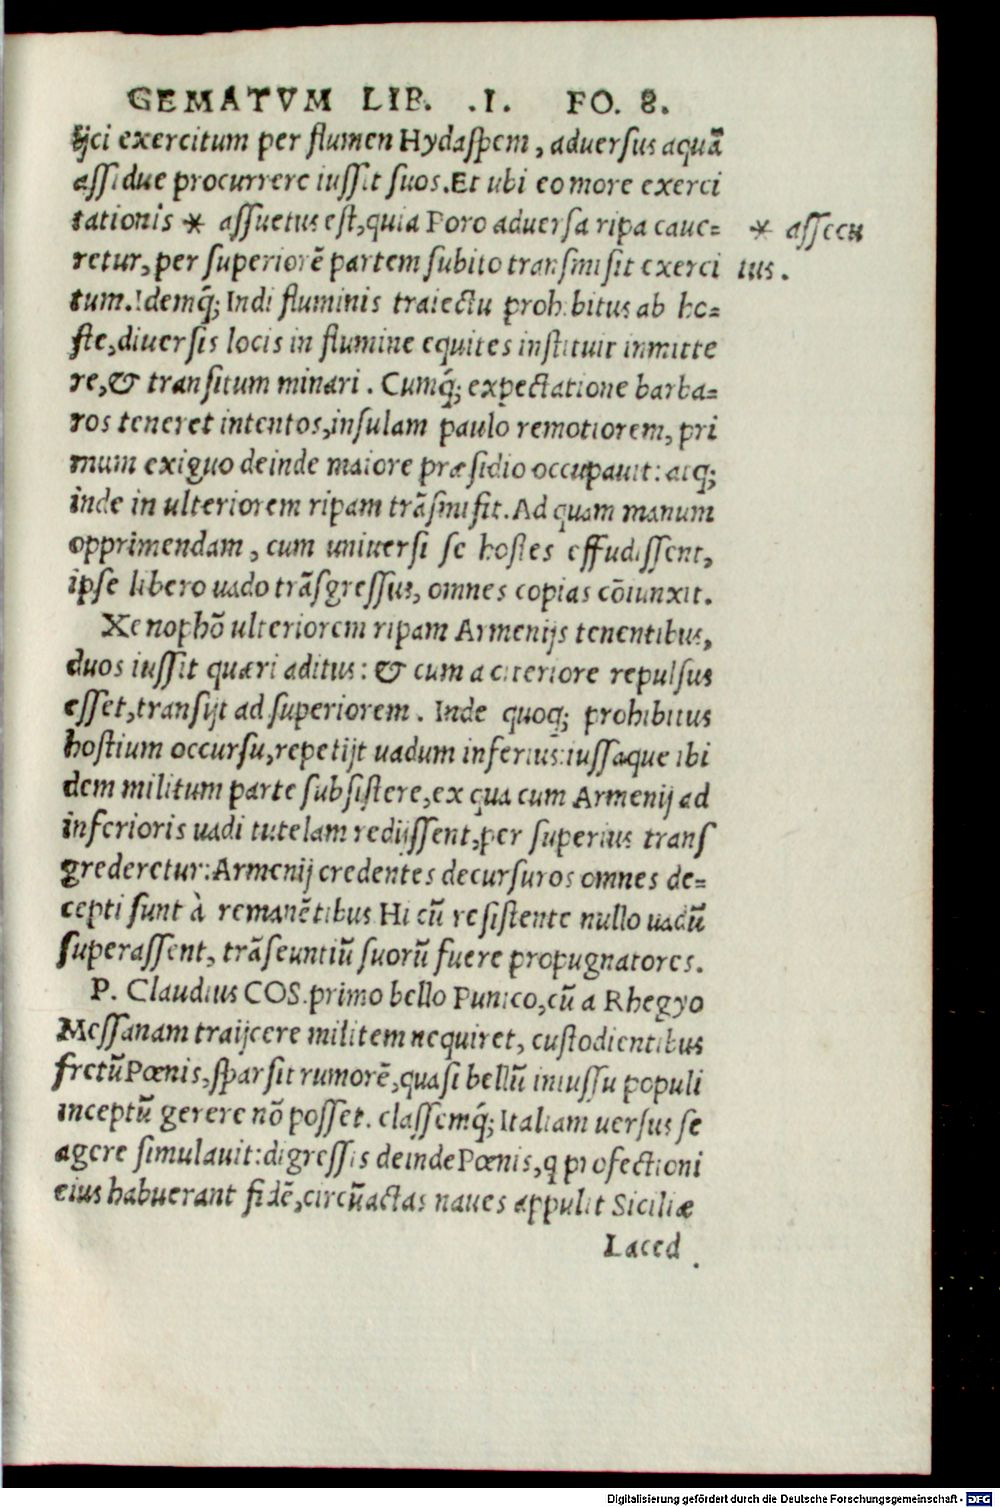 GEMATVM LIB. .I. FO. 8.
ijci exercitum per flumen Hydaſpem, aduerſus aquã
aſſidue procurrere iuſſit ſuos. Et ubi eo more exerci
tationis * aſſuetus eſt, quia Poro aduerſa ripa caue=
* aſſecu
retur, per ſuperiorẽ partem ſubito tranſmiſit exerci
tus.
tum. Idemq́; Indi fluminis traiectu prohibitus ab ho=
ſte, diuerſis locis in flumine equites inſtituit inmitte
re, & tranſitum minari. Cumq́; expectatione barba=
ros teneret intentos, inſulam paulo remotiorem, pri
mum exiguo deinde maiore præſidio occupauit: atq;
inde in ulteriorem ripam trãſmiſit. Ad quam manum
opprimendam, cum uniuerſi ſe hoſtes effudiſſent,
ipſe libero uado trãſgreſſus, omnes copias cõiunxit.
Xenophõ ulteriorem ripam Armenijs tenentibus,
duos iuſſit quæri aditus: & cum a citeriore repulſus
eſſet, tranſijt ad ſuperiorem. Inde quoq; prohibitus
hoſtium occurſu, repetijt uadum inferius: iuſſaque ibi
dem militum parte ſubſiſtere, ex qua cum Armenij ad
inferioris uadi tutelam redijſſent, per ſuperius tranſ
grederetur: Armenij credentes decurſuros omnes de=
cepti ſunt à remanẽtibus Hi cũ reſiſtente nullo uadũ
ſuperaſſent, trãſeuntiũ ſuorũ fuere propugnatores.
P. Claudius COS. primo bello Punico, cũ a Rhegyo
Meſſanam traijcere militem nequiret, cuſtodientibus
fretũ Pœnis, ſparſit rumorẽ, quaſi bellũ iniuſſu populi
inceptũ gerere nõ poſſet. claſſemq́; Italiam uerſus ſe
agere ſimulauit: digreſſis deinde Pœnis, q profectioni
eius habuerant fidẽ, circũactas naues appulit Siciliæ
Laced
Digitalisierung gefördert durch die Deutsche Forschungsgemeinschaft - DFG